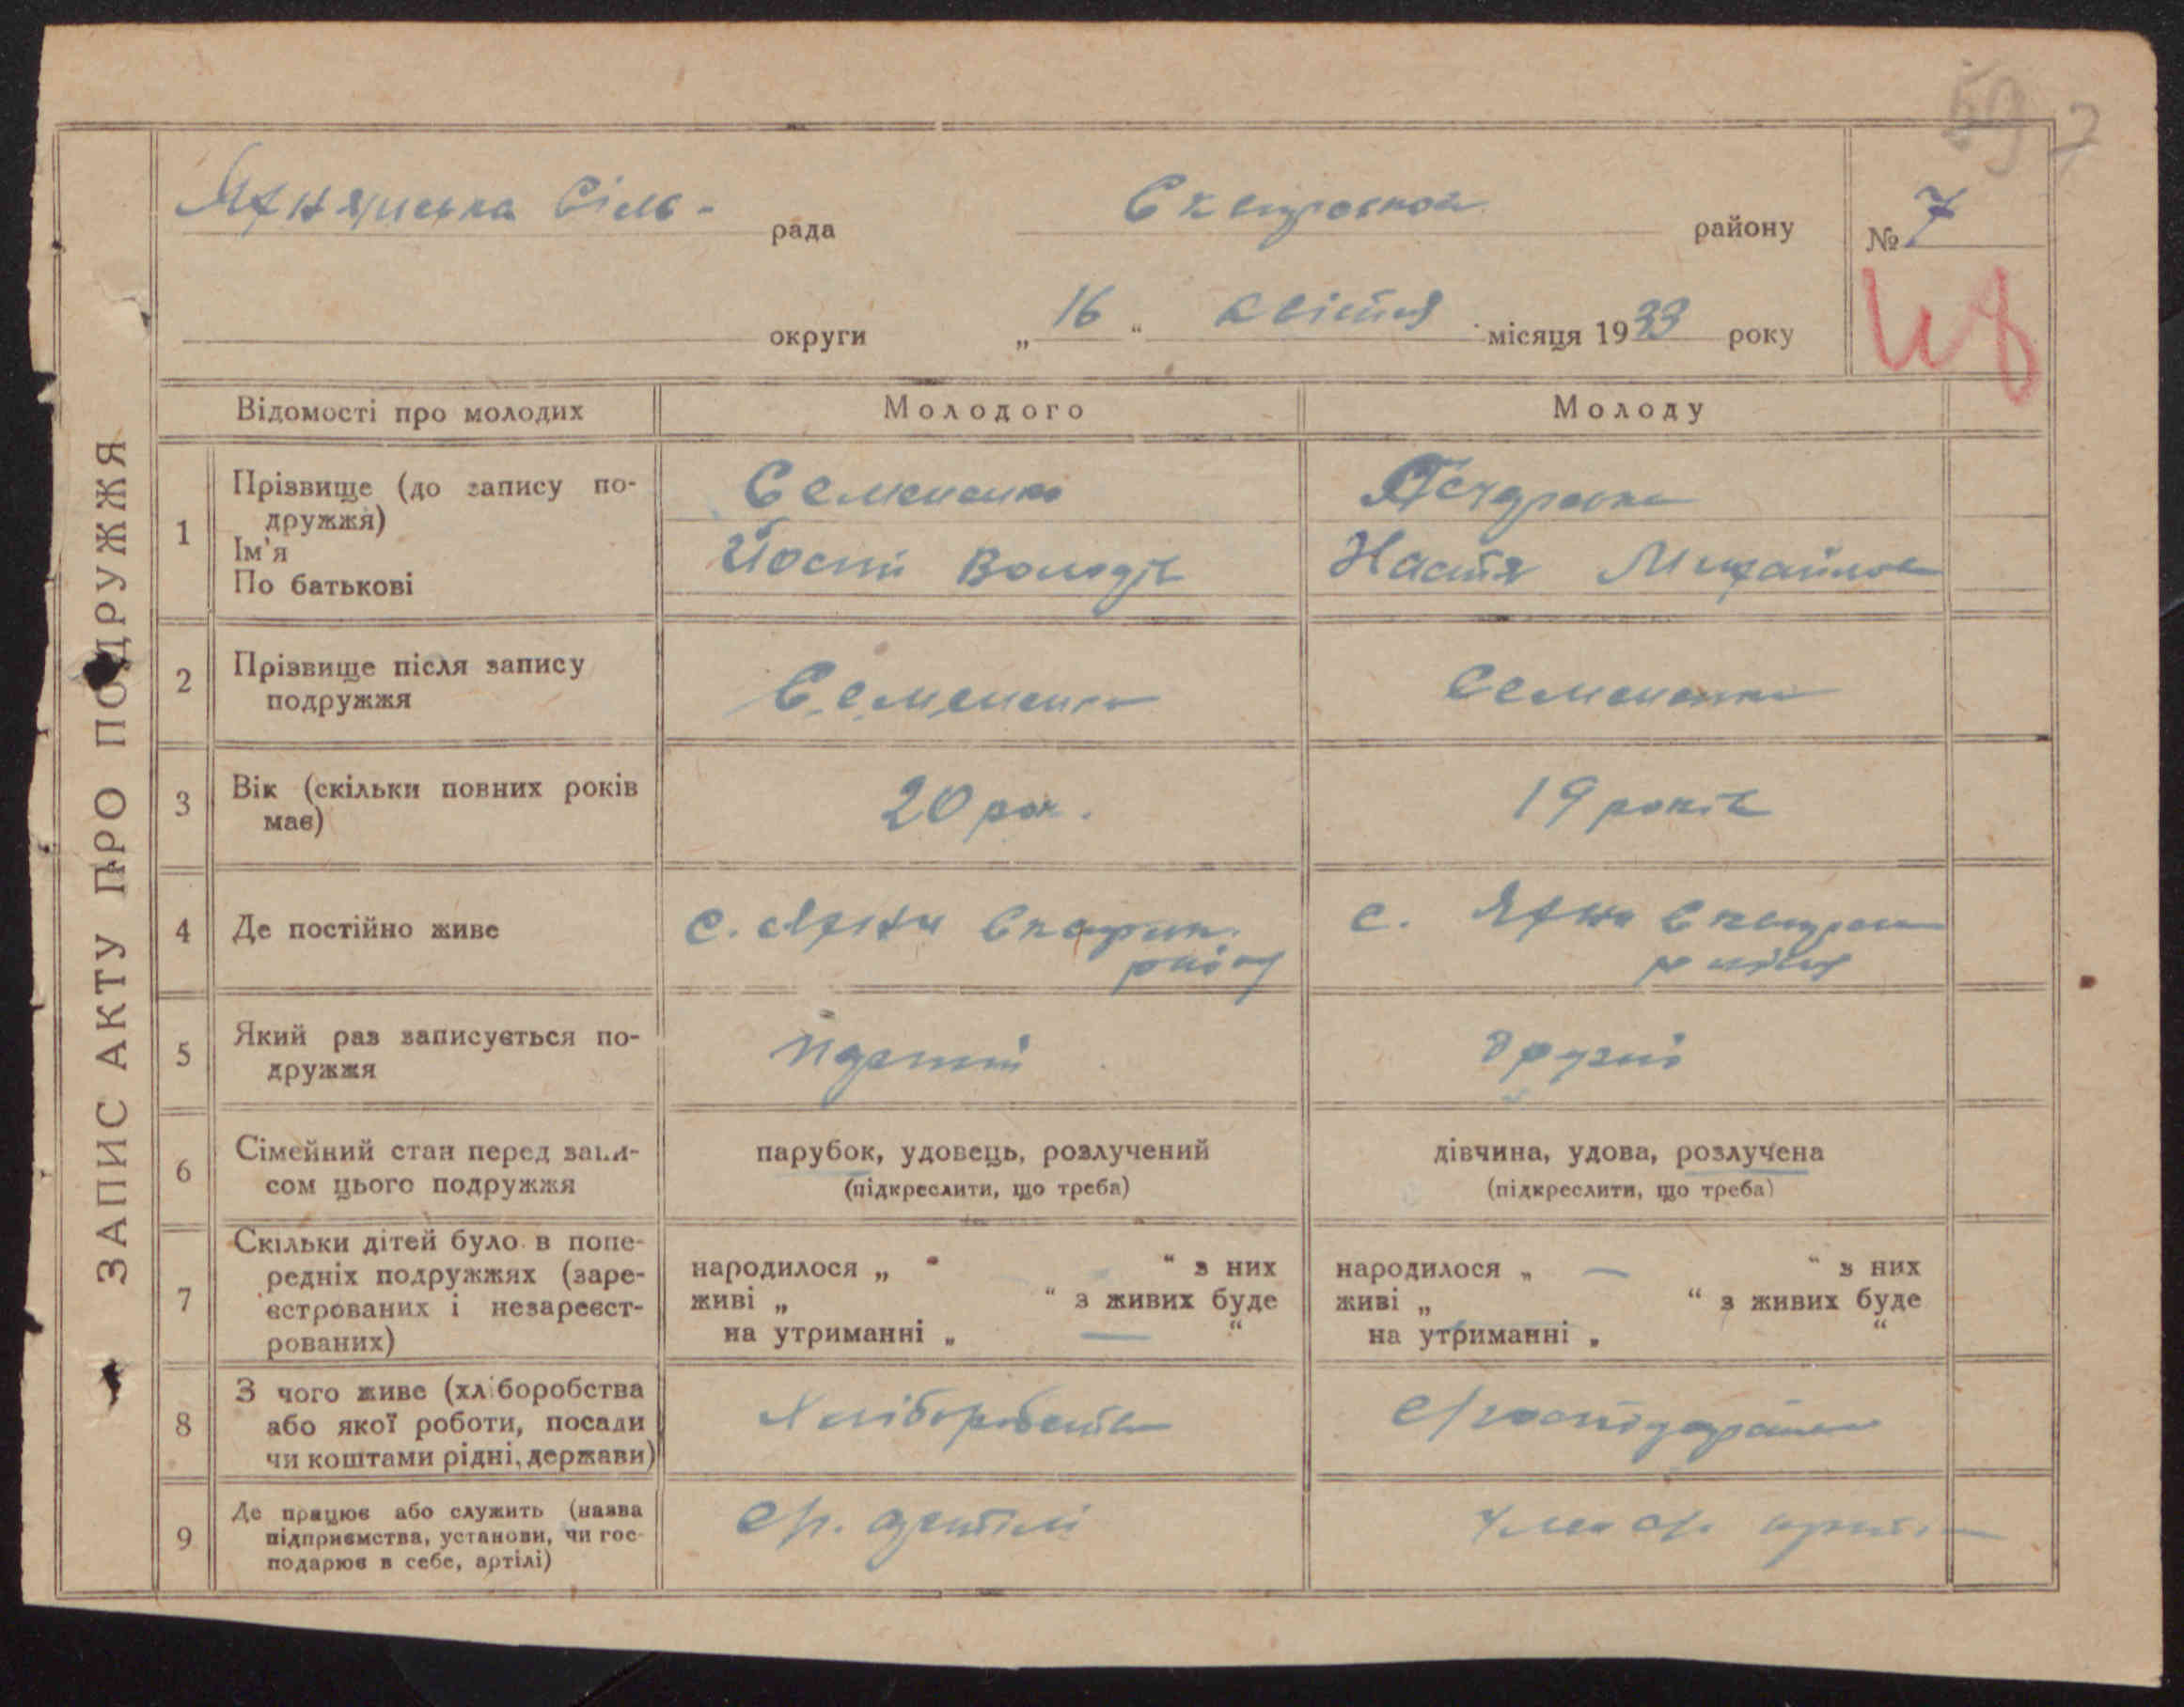 59 7
Сіль-
рада
району
№ 7
округи
„ 16 “ квітня місяця 1933 року
ЗАПИС АКТУ ПРО ПОДРУЖЖЯ
Відомості про молодих
Молодого
Молоду
1
Прізвище (до запису по-
дружжя)
Ім'я
По батькові
Семененко
Настя Михайлов
2
Прізвище після запису
подружжя
Семененко
Семененко
3
Вік (скільки повних років
має)
20 рок.
19 років
4
Де постійно живе
с.
с.
5
Який раз записується по-
дружжя
другий
6
Сімейний стан перед запи-
сом цього подружжя
парубок, удовець, розлучений
(підкреслити, що треба)
дівчина, удова, розлучена
(підкреслити, що треба)
7
Скільки дітей було в попе-
редніх подружжях (заре-
єстрованих і незареєст-
рованих)
народилося „ “ з них
живі „ “ з живих буде
на утриманні „ — “
народилося „ — “ з них
живі „ “ з живих буде
на утриманні „ “
8
З чого живе (хліборобства
або якої роботи, посади
чи коштами рідні, держави)
Хліборобств
9
Де працює або служить (назва
підприємства, установи, чи гос-
подарює в себе, артілі)
с/г. артілі
член с/г.